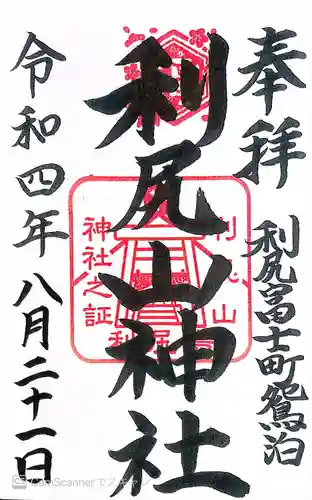 奉拝
利尻富士町鴛泊
利尻山神社
令和四年八月二十一日
利尻山
神社之証
CamScannerでスキャン